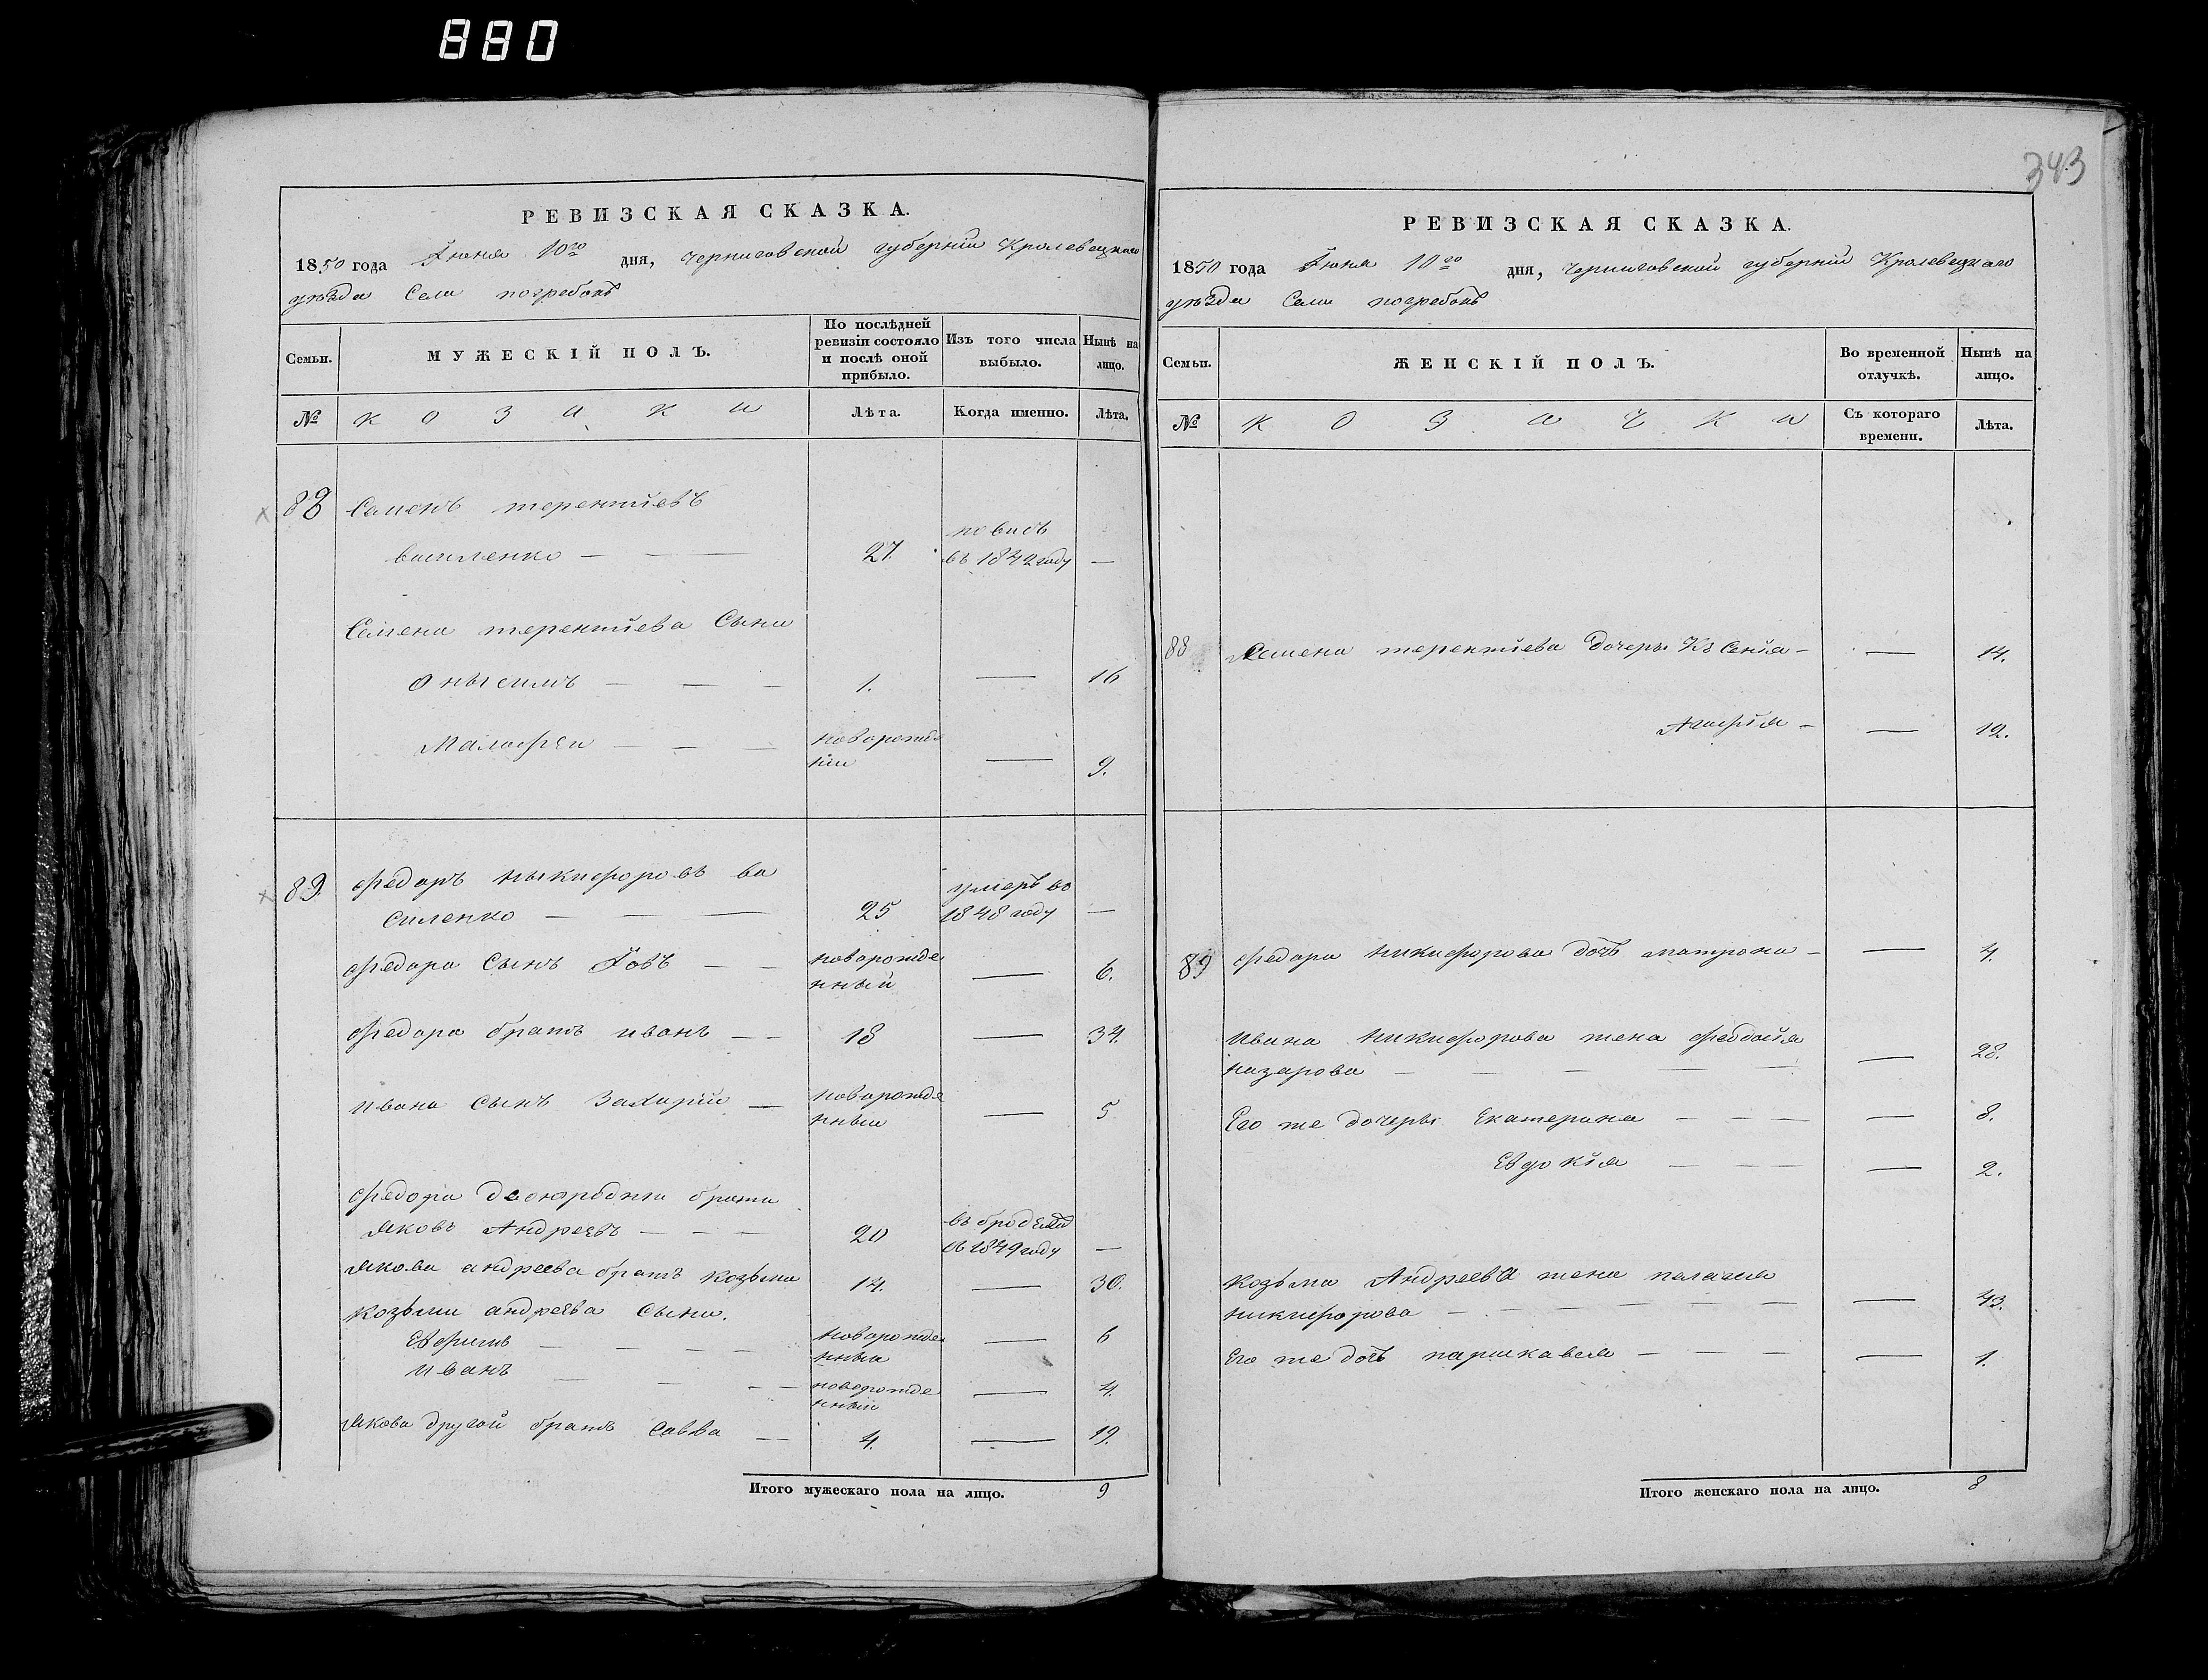 880
343
РЕВИЗСКАЯ СКАЗКА.
1850 года Іюня 10го дня, Черниговской губерніи Кролевецкаго
уезда Села погребокъ
Семьи. МУЖЕСКІЙ ПОЛЪ. По послѣдней ревизіи состояло и послѣ оной прибыло. Изъ того числа выбыло. Нынѣ на лицо.
№ козаки Лѣта. Когда именно. Лѣта.
88 Семенъ терентіевъ
василенко — — — 27. въ 1842 году —
Семена терентіева Сыни
Онысимъ — — — 1. — 16
Малафеи — — — новорожде
ніи — 9.
89. федоръ ныкифоровъ ва
силенко — — — 25 умеръ во 1848 году —
федора Сынъ Іовъ — — новорожде
нный — 6.
федора братъ иванъ — — 18 — 34.
ивана Сынъ Захарій — новорожде
нныи — 5
федора двоюродни брати
яковъ Андреевъ — — — 20 в 1849 году —
якова андреева братъ козьма 14. — 30.
козьми андреева Сыни.
Евфимъ — — — — новорожде
нныи — 6
иванъ — — — — новорожде
нныи — 4.
якова другой братъ Савва — — 4. — 19.
Итого мужескаго пола на лицо. 9
РЕВИЗСКАЯ СКАЗКА.
1850 года Іюня 10го дня, Черниговской губерніи Кролевецкаго
уезда Села погребокъ
Семьи. ЖЕНСКІЙ ПОЛЪ. Во временной отлучкѣ. Нынѣ на лицо.
№ козачки Съ котораго времени. Лѣта.
88 Семена терентіева дочеры Ксенія — — 14.
Агафія — — 12.
89 федора никифорова дочъ матрона — — 4.
ивана никифорова жена феодосія
назарова — — — — — — 28.
Его же дочеры Екатерина — — — — 8.
Евдокія — — — — 2.
козьми Андреева жена пелагея
никифорова — — — — — — — 43.
Его же дочъ параскавея — — — — 1.
Итого женскаго пола на лицо. 8